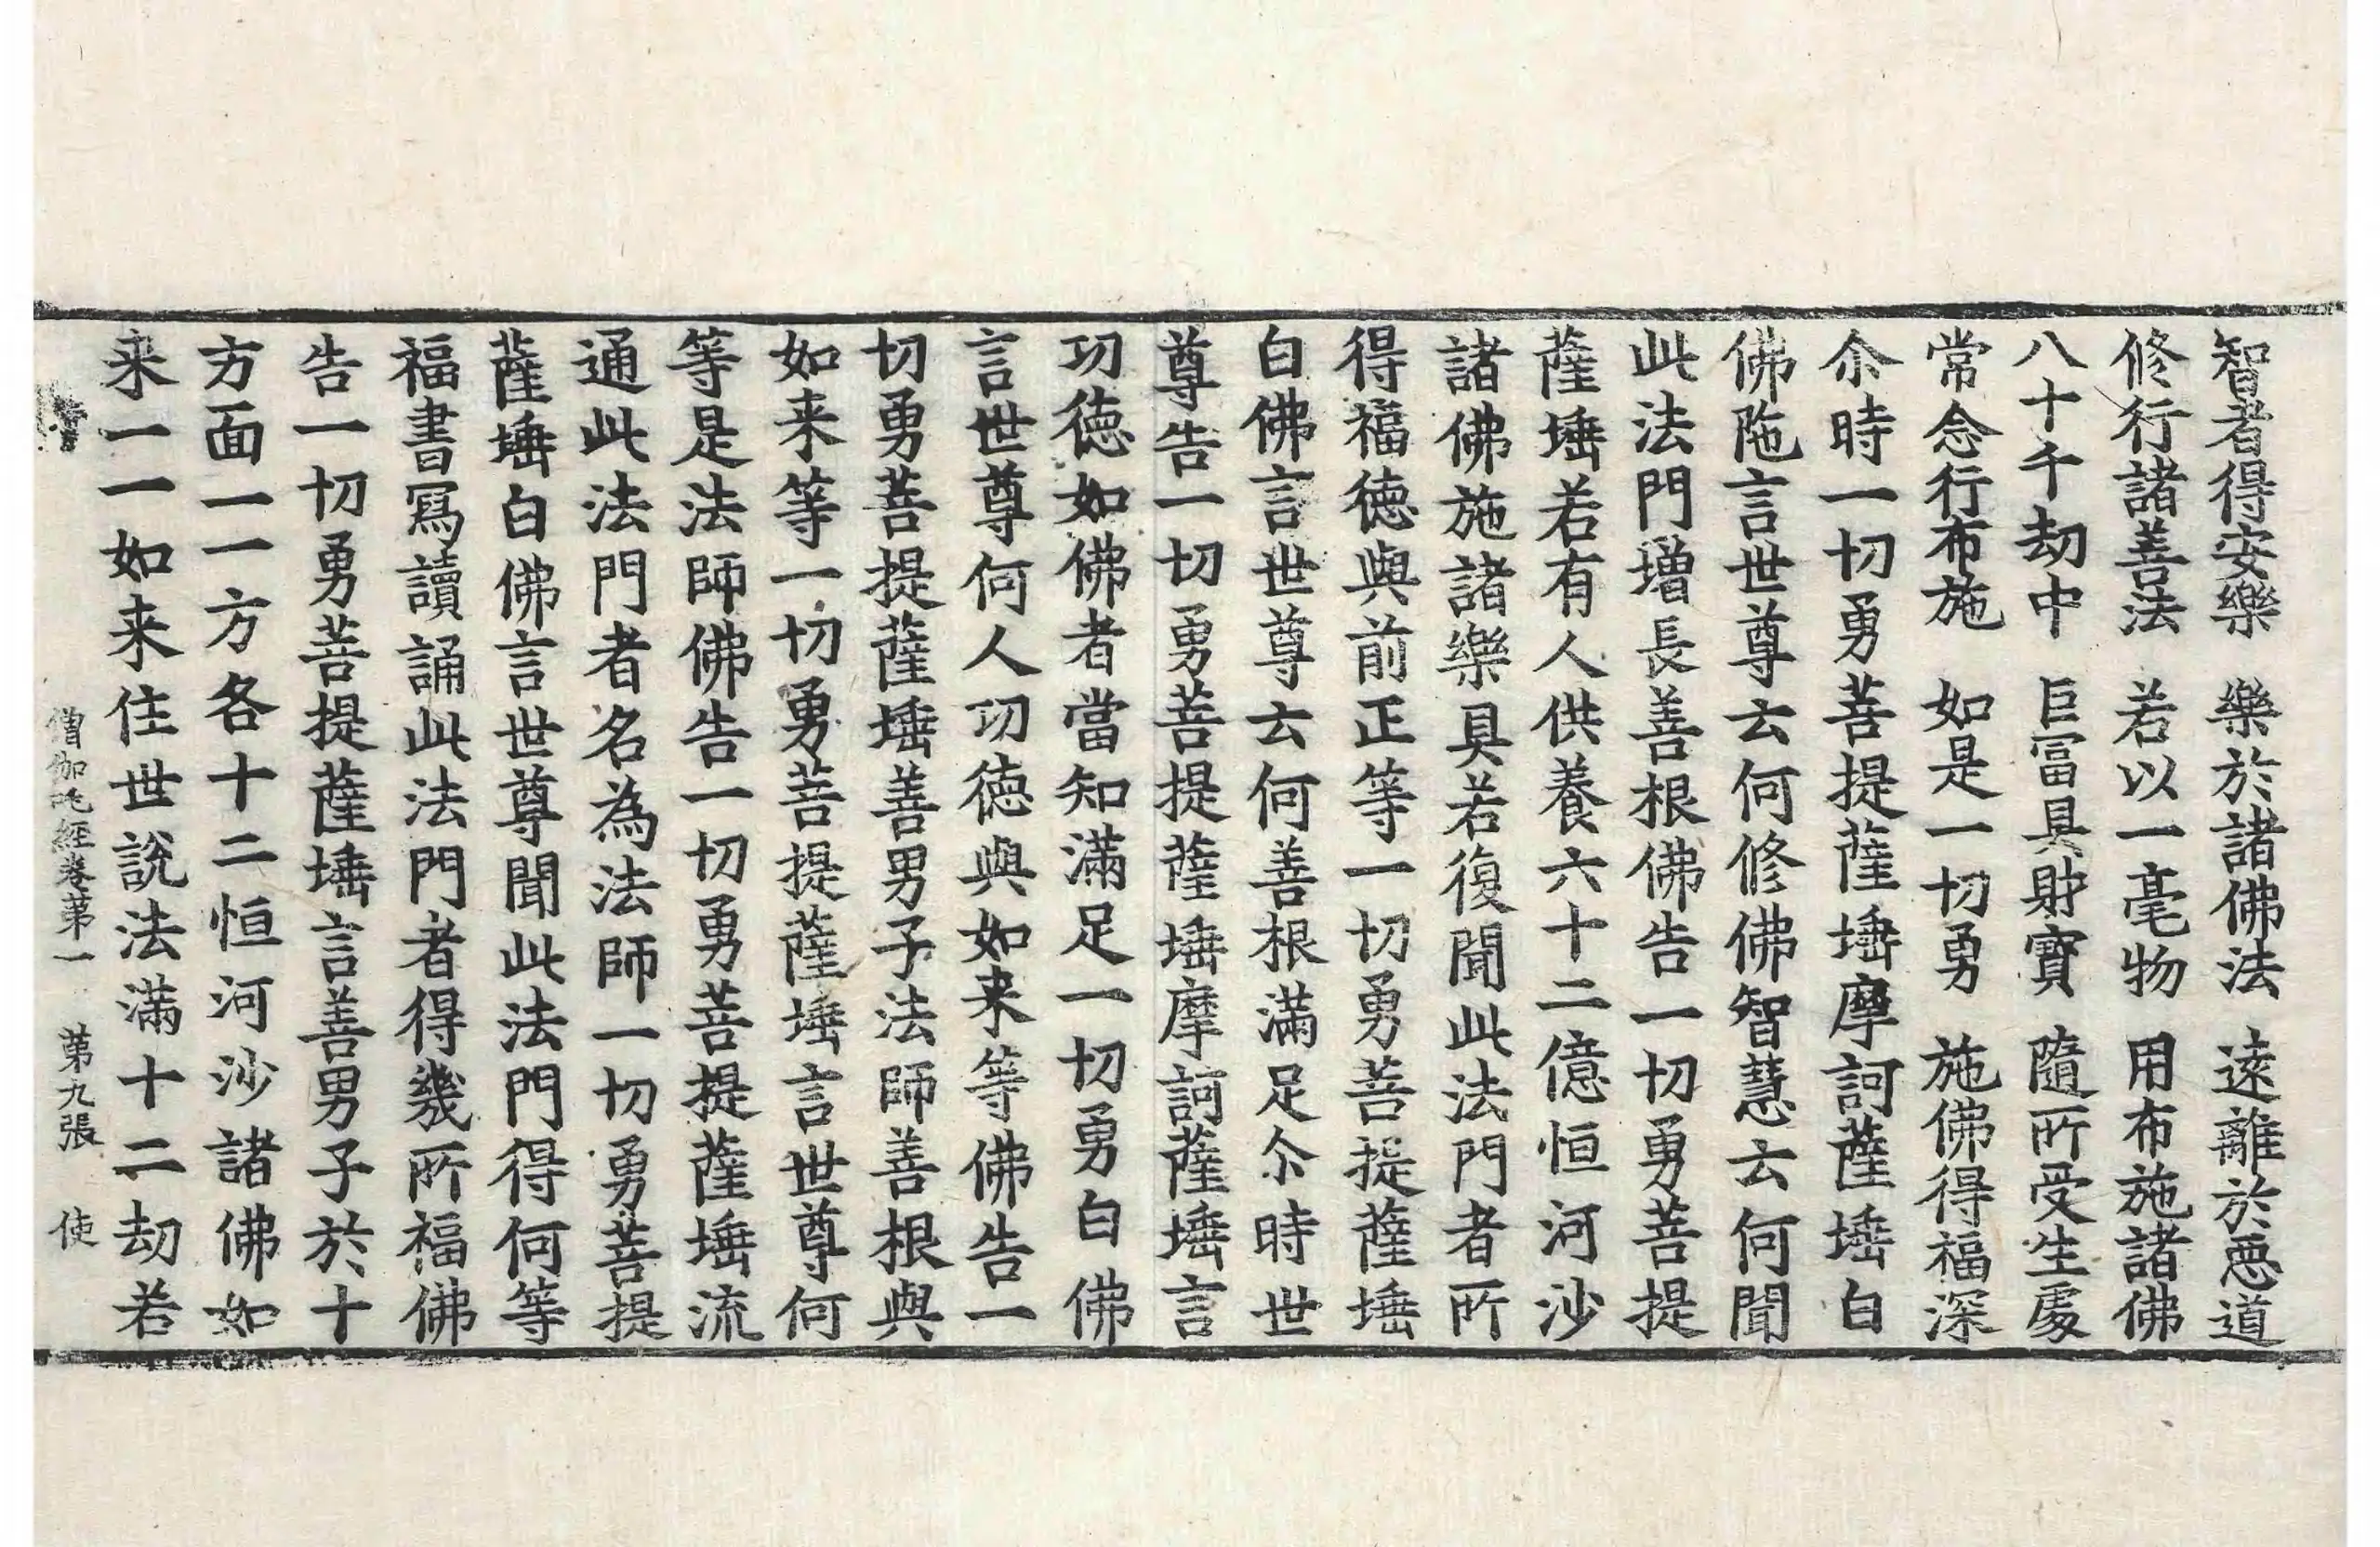 智者得安樂　樂於諸佛法　遠離於惡道
修行諸善法　若以一毫物　用布施諸佛
八十千劫中　巨富具財寶　隨所受生處
常念行布施　如是一切勇　施佛得福深
尒時一切勇菩提薩埵摩訶薩埵白
佛陁言世尊云何修佛智慧云何聞
此法門增長善根佛告一切勇菩提
薩埵若有人供養六十二億恒河沙
諸佛施諸樂具若復聞此法門者所
得福德與前正等一切勇菩提薩埵
白佛言世尊云何善根滿足尒時世
尊告一切勇菩提薩埵摩訶薩埵言
功德如佛者當知滿足一切勇白佛
言世尊何人功德與如来等佛告一
切勇菩提薩埵善男子法師善根與
如来等一切勇菩提薩埵言世尊何
等是法師佛告一切勇菩提薩埵流
通此法門者名為法師一切勇菩提
薩埵白佛言世尊聞此法門得何等
福書寫讀誦此法門者得幾所福佛
告一切勇菩提薩埵言善男子於十
方面一一方各十二恒河沙諸佛如
来一一如来住世說法滿十二劫若
僧伽吒經卷第一　第九張　使